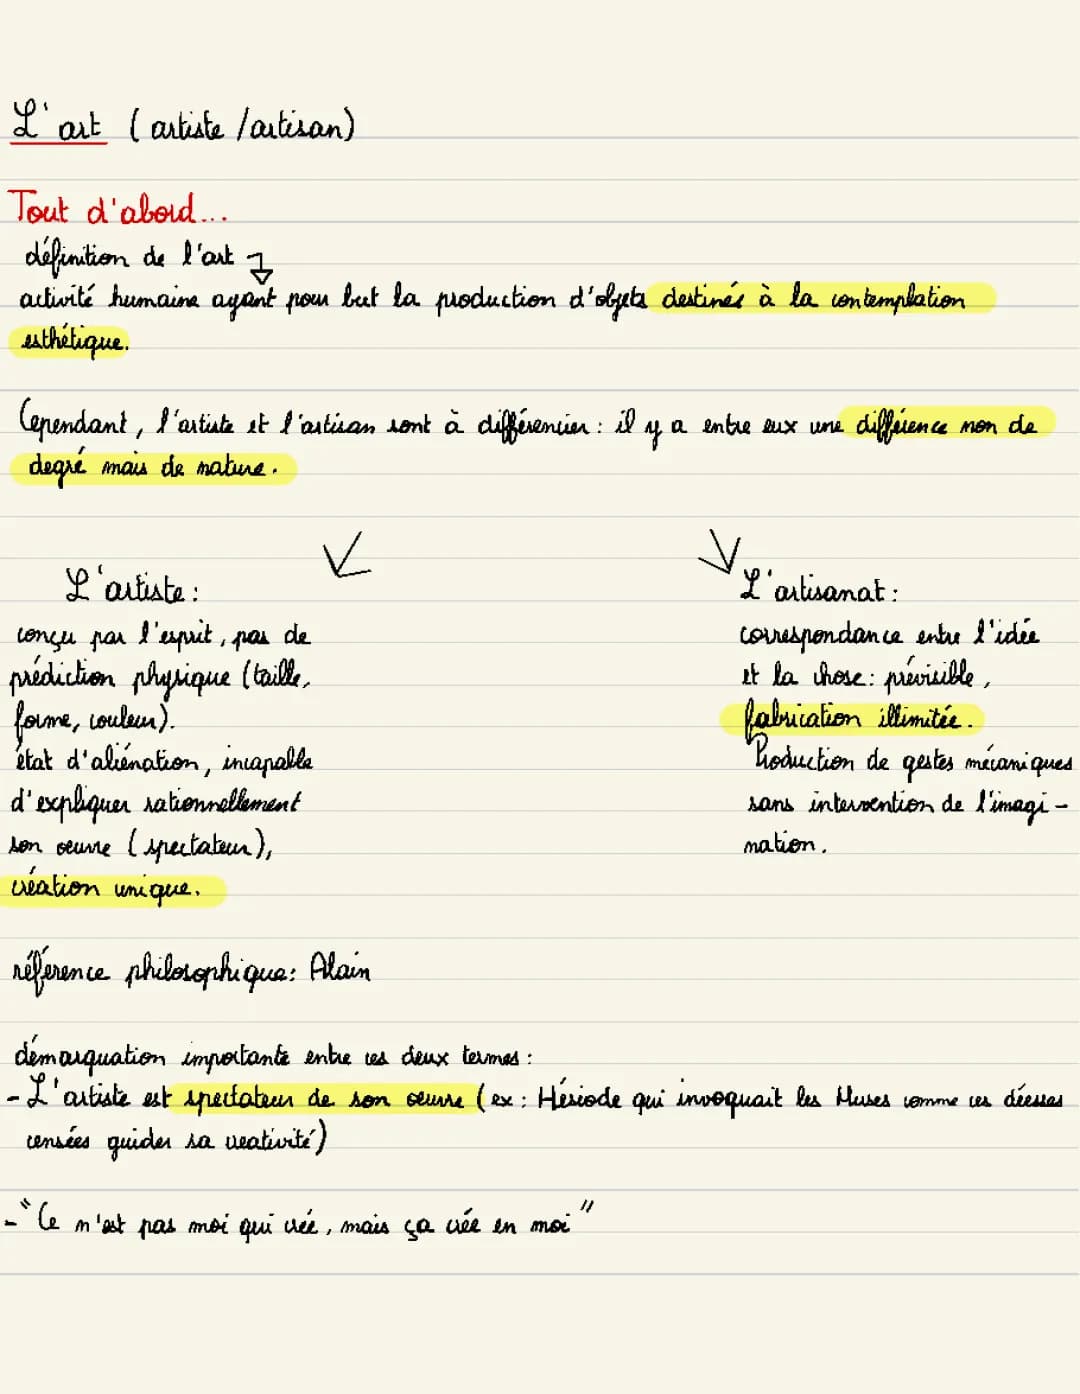 L'art (artiste/artisan)
Tout d'abord...
définition de l'art
activité humaine ayant pour but la production d'objets destinés à la contemplation
esthétique.
Cependant, l'artiste et l'artisan sont à différencier : il y a entre eux une différence non de
degré mais de nature.
L'artiste :
conçu par l'esprit, pas de
prédiction physique (taille,
forme, couleur).
état d'aliénation, incapable
d'expliquer rationnellement
son oeuvre (spectateur),
création unique.
L'artisanat :
correspondance entre l'idée
et la chose : prévisible,
fabrication illimitée.
Production de gestes mécaniques
sans intervention de l'imagi-
nation.
référence philosophique : Alain
démarquation importante entre ces deux termes :
- L'artiste est spectateur de son oeuvre (ex : Hésiode qui invoquait les Muses comme ces déesses
censées guider sa créativité)
- "Ce n'est pas moi qui crée, mais ça crée en moi"